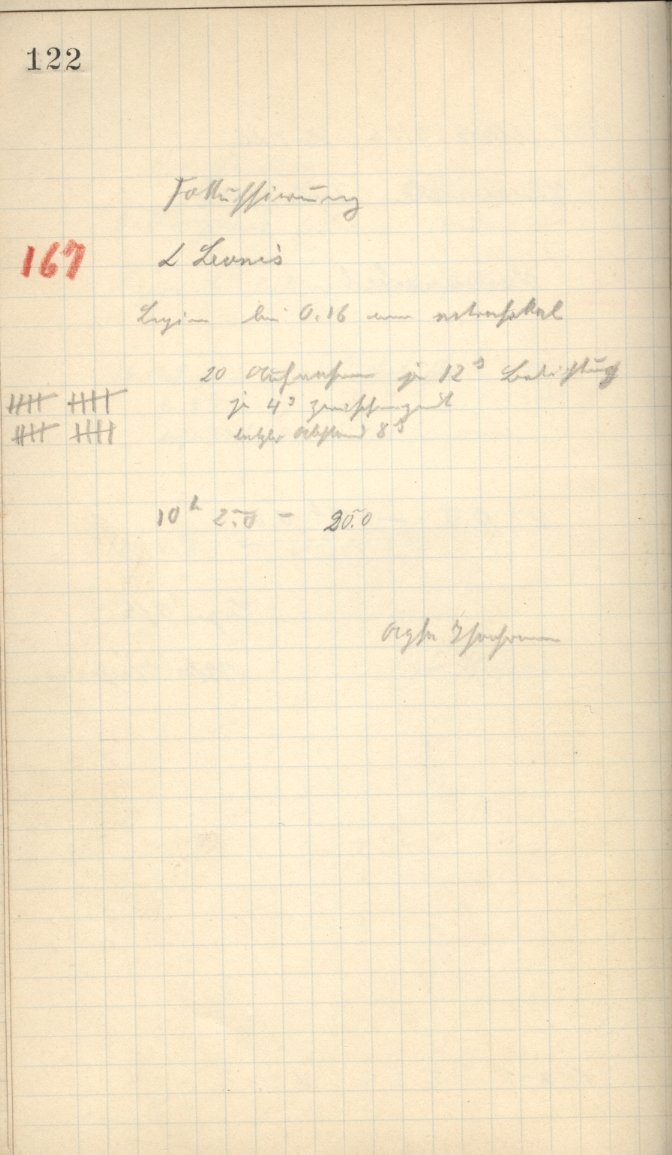 122
Fokussierung
167 α Leonis
Beginn bei 0.16 mm extrafokal
20 Aufnahmen je 12ˢ Belichtung
je 4ˢ Zwischenzeit
letzter Abstand 8ˢ
10ʰ 2.0 – 20.0